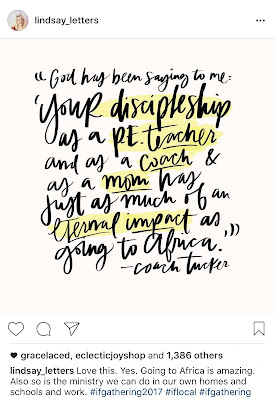 lindsay_letters
"God has been saying to me:
'YOUR discipleship
as a P.E. teacher
and as a coach &
as a mom has
just as much of an
eternal impact as
going to Africa.'"
—coach tucker
gracelaced, eclecticjoyshop and 1,386 others
lindsay_letters Love this. Yes. Going to Africa is amazing.
Also so is the ministry we can do in our own homes and
schools and work. #ifgathering2017 #iflocal #ifgathering